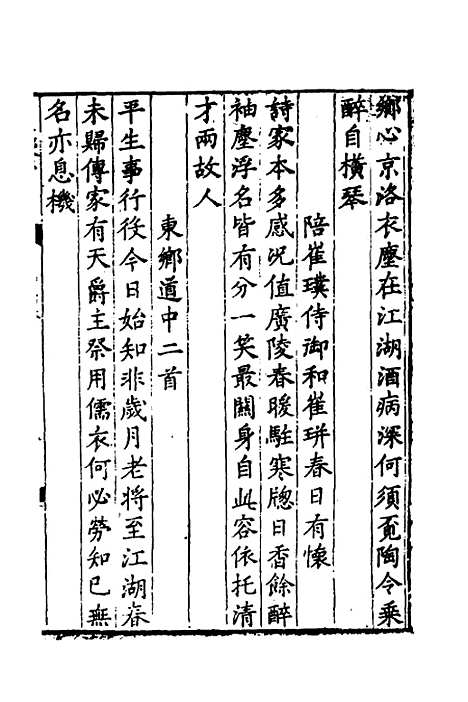 鄉心京洛衣塵在江湖酒病深何須覓陶令乘
醉自橫琴
陪崔璞侍御和崔珙春日有懷
詩家本多感况值廣陵春暖駐寒牕日香餘醉
袖塵浮名皆有分一笑最關身自此容依托清
才兩故人
東鄉道中二首
平生事行役今日始知非歲月老將至江湖春
未歸傳家有天爵主祭用儒衣何必勞知己無
名亦息機